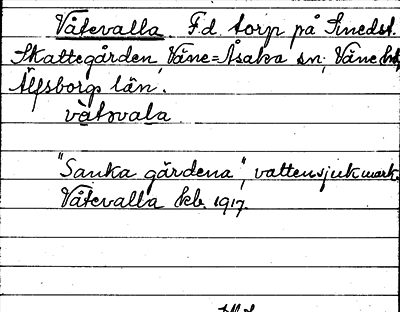 Våtevalla. F.d. torp på Smedst.
Skattegården, Väne=Åsaka sn, Väne hd,
Älfsborgs län.
vàtəvala
"Sanka gärdena", vattensjuk mark.
Våtevalla kb. 1917.